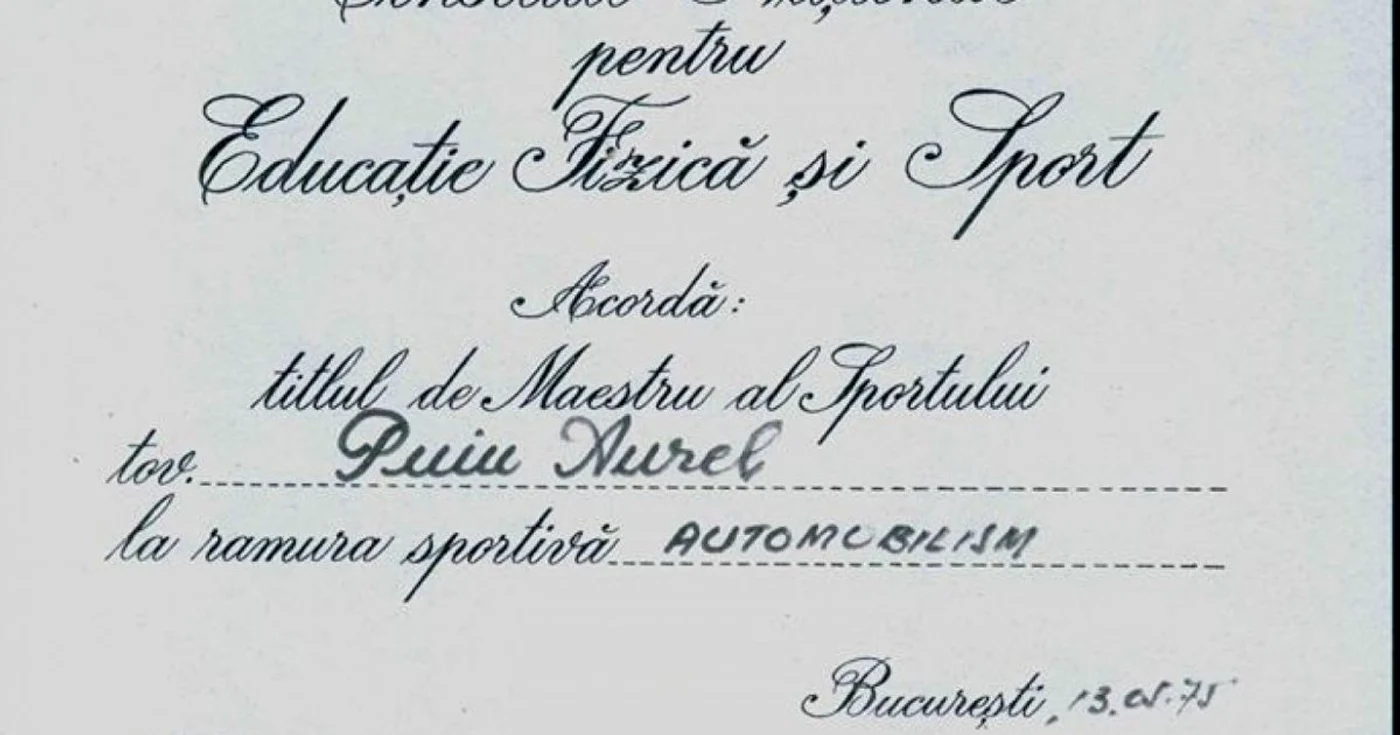 Consiliul Național
pentru
Educație Fizică și Sport
Acordă:
titlul de Maestru al Sportului
tov. Puiu Aurel
la ramura sportivă AUTOMOBILISM
București, 13.05.75